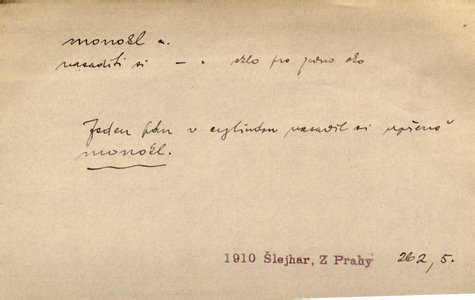 monokl m.
nasaditi si – " sklo pro jedno oko
Jeden pán v cylindru nasadil si upřeně
monokl.
1910 Šlejhar, Z Prahy 262, 5.